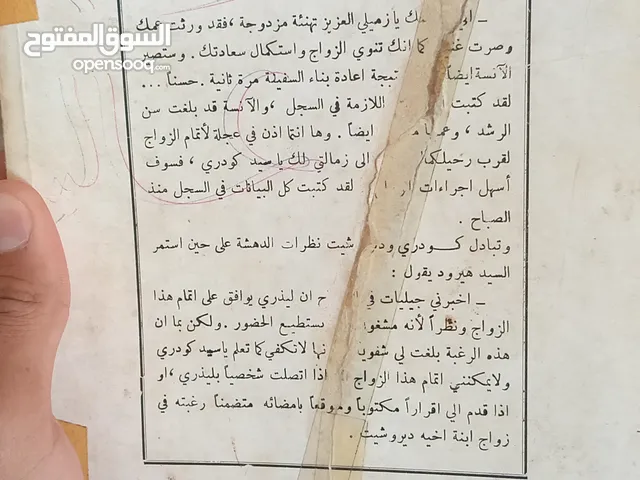 السوق المفتوح
opensooq.com
ـ يا زميلي العزيز تهنئة مزدوجة ، فقد ورثت عمك
وصرت كما انك تنوي الزواج واستكمال سعادتك . وستصبر
الآنسة ايضاً اعادة بناء السفينة مرة ثانية . حسناً ...
لقد كتبت اللازمة في السجل ، والآنسة قد بلغت سن
الرشد ، ايضاً . وها انتما اذن في عجلة لأتمام الزواج
لقرب الى زمالتي لك يا سيد كودري ، فسوف
أسهل اجراءات لقد كتبت كل البيانات في السجل منذ
الصباح .
وتبادل كودري شيت نظرات الدهشة على حين استمر
السيد هيرود يقول :
ـ اخبرني جيليات ان ليذري يوافق على اتمام هذا
الزواج ونظراً لأنه يستطيع الحضور . ولكن بما ان
هذه الرغبة بلغت لي لانكفي كما تعلم ياسيد كودري
ولايمكنني اتمام هذا الزواج اذا اتصلت شخصياً بليذري ، او
اذا قدم الي اقراراً مكتوباً وموقعاً بامضائه متضمناً رغبته في
زواج ابنة اخيه ديروشيت .